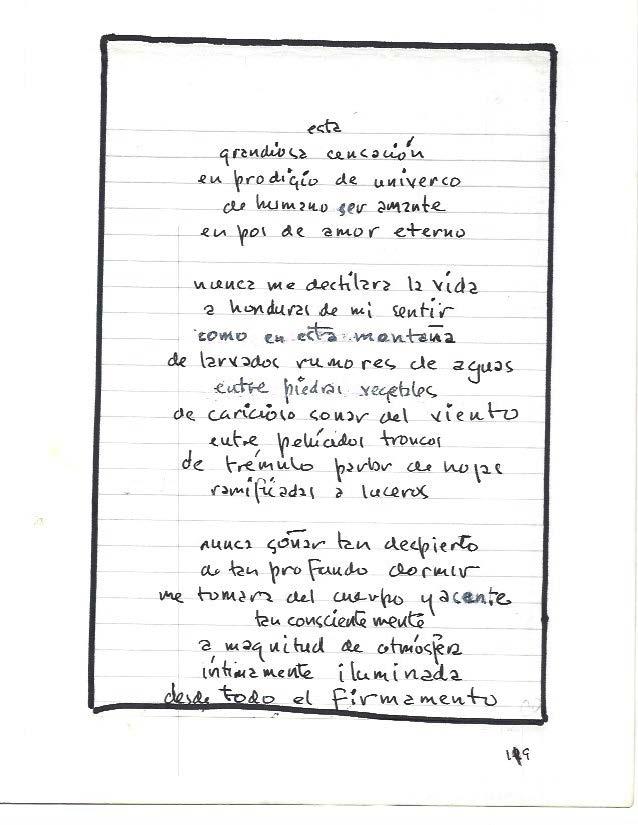 esta
grandiosa censación
en prodigio de univerco
de humano ser amante
en pos de amor eterno
nunca me dectilara la vida
a honduras de mi sentir
como en esta montaña
de larvados rumores de aguas
entre piedras vegetbles
de caricioso sonar del viento
entre peluciados troncos
de trémulo parlar de hojas
ramificadas a luceros
nunca soñar tan decpierto
de tan profundo dormir
me tomara del cuerpo yacente
tan conscientemente
a magnitud de atmósfera
íntimamente iluminada
desde todo el firmamento
149